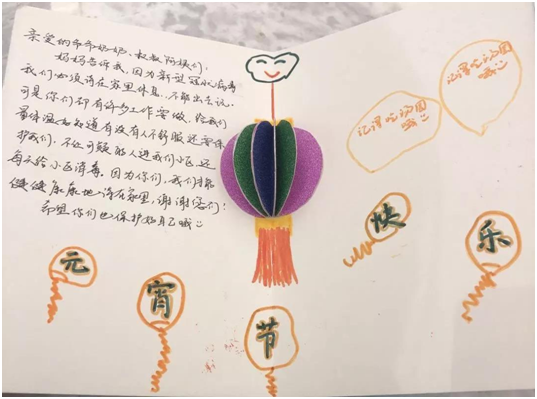 亲爱的爷爷奶奶、叔叔阿姨们:
妈妈告诉我,因为新型冠状病毒
我们必须待在家里休息,不能出去玩。
可是你们却有许多工作要做,给我们
量体温知道有没有人不舒服还要保
护我们,不让可疑的人进我们小区,还
每天给小区消毒。因为你们,我们才能
健健康康地待在家里,谢谢您们!
希望你们也保护好自己哦
记得吃汤圆
哦
记得吃汤圆
哦
元
宵
节
快
乐